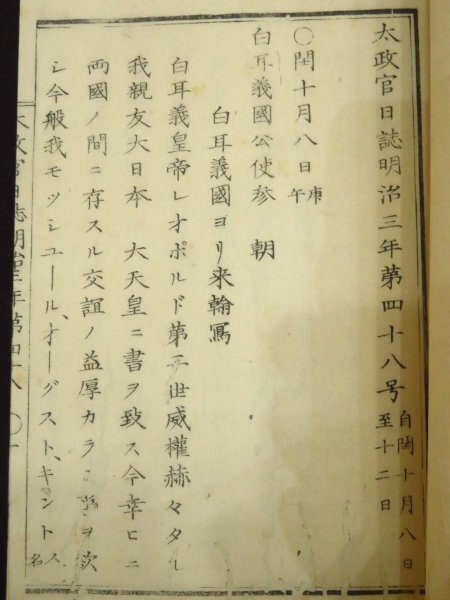 太政官日誌明治三年第四十八号 自閏十月八日至十二日
〇閏十月八日 庚午
白耳義國公使参 朝
白耳義國ヨリ来翰寫
白耳義皇帝レオポルド第二世威權赫々タル
我親友大日本 大天皇ニ書ヲ致ス今幸ヒニ
両國ノ間ニ存スル交誼ノ益厚カラン事ヲ欲
シ今般我モツシユール、オーグスト、キント 人名
太政官日誌明治三年第四十八 〇一